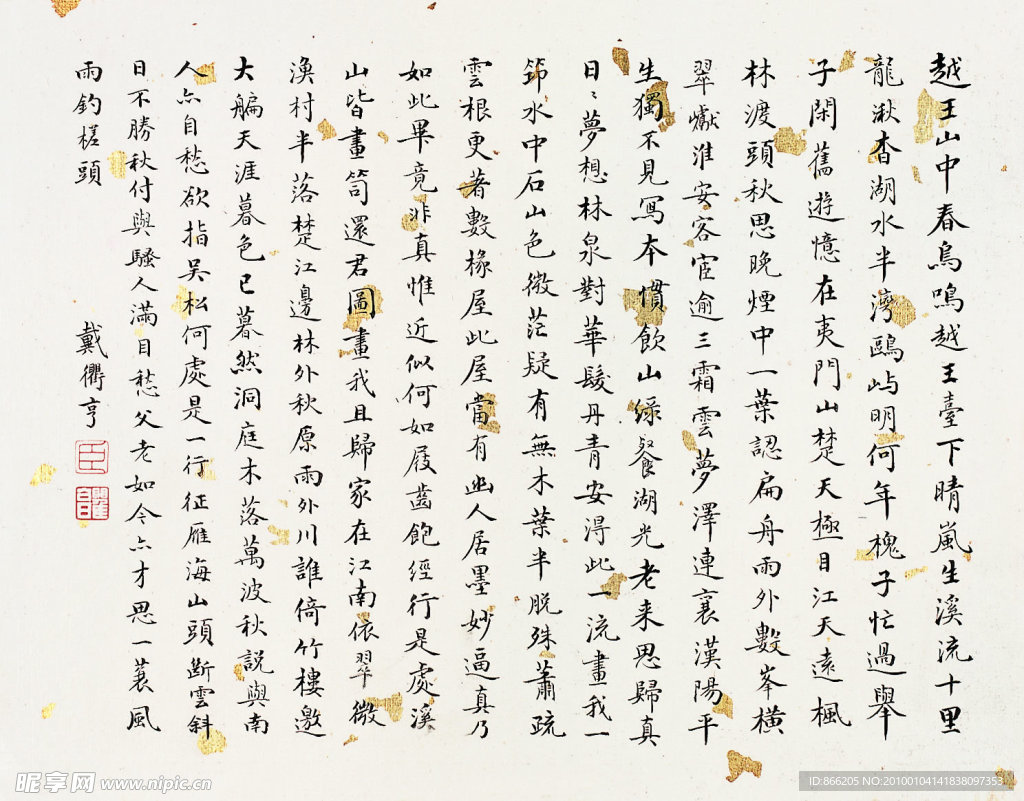 越王山中春鳥鳴越王臺下晴嵐生溪流十里
龍湫杳湖水半灣鷗嶼明何年槐子忙過舉
子閑舊遊憶在夷門山楚天極目江天遠楓
林渡頭秋思晚煙中一葉認扁舟雨外數峯橫
翠巘淮安客宦逾三霜雲夢澤連襄漢陽平
生獨不見寫本慣飲山綠餐湖光老来思歸真
日〻夢想林泉對華髮丹青安得此一流畫我一
笻水中石山色微茫疑有無木葉半脫殊蕭疏
雲根更著數椽屋此屋當有幽人居墨妙逼真乃
如此畢竟非真惟近似何如屐齒飽經行是處溪
山皆畫笥還君圖畫我且歸家在江南依翠微
漁村半落楚江邊林外秋原雨外川誰倚竹樓邀
大艑天涯暮色已暮然洞庭木落萬波秋説與南
人亦自愁欲指吳松何處是一行征雁海山頭斷雲斜
日不勝秋付與騷人滿目愁父老如今亦才思一蓑風
雨釣槎頭
戴衢亨
臣
昵享网 www.nipic.cn
ID:866205 NO:20100104141838097353